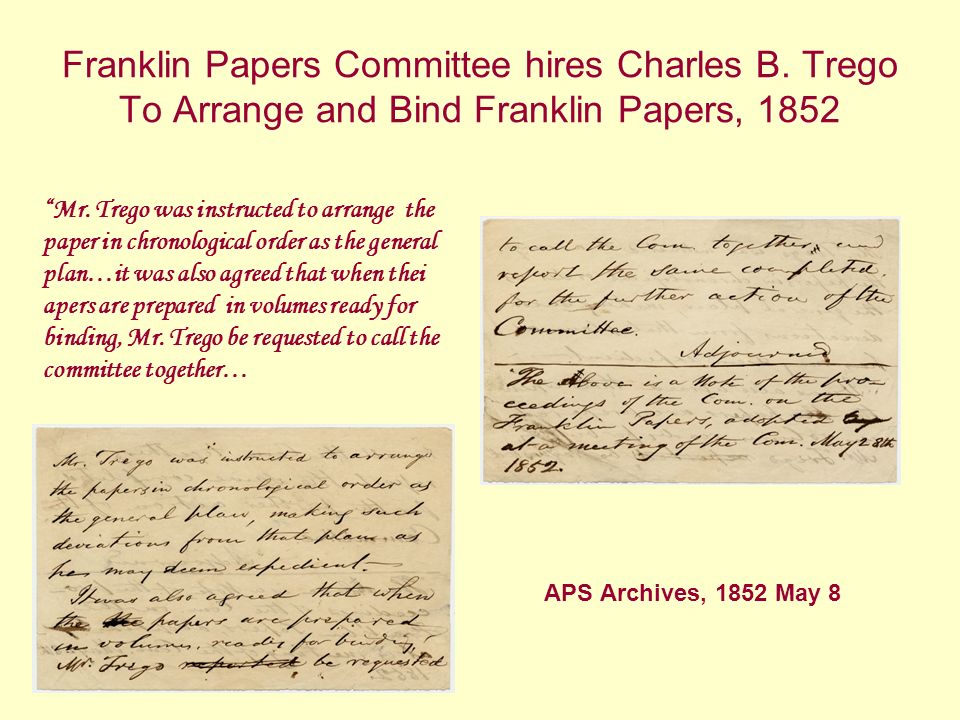 Franklin Papers Committee hires Charles B. Trego
To Arrange and Bind Franklin Papers, 1852
“Mr. Trego was instructed to arrange the
paper in chronological order as the general
plan…it was also agreed that when thei
apers are prepared in volumes ready for
binding, Mr. Trego be requested to call the
committee together…
Mr. Trego was instructed to arrange
the papers in chronological order as
the general plan, making such
deviations from that plan as
he may deem expedient.
It was also agreed that when
the papers are prepared
in volumes, ready for binding,
Mr. Trego reported be requested
to call the Com. together, and
report the same completed.
for the further action of the
Committee.
Adjourned
The Above is a Note of the pro-
ceedings of the Com. on the
Franklin Papers, adopted
at a meeting of the Com. May 28th
1852.
APS Archives, 1852 May 8